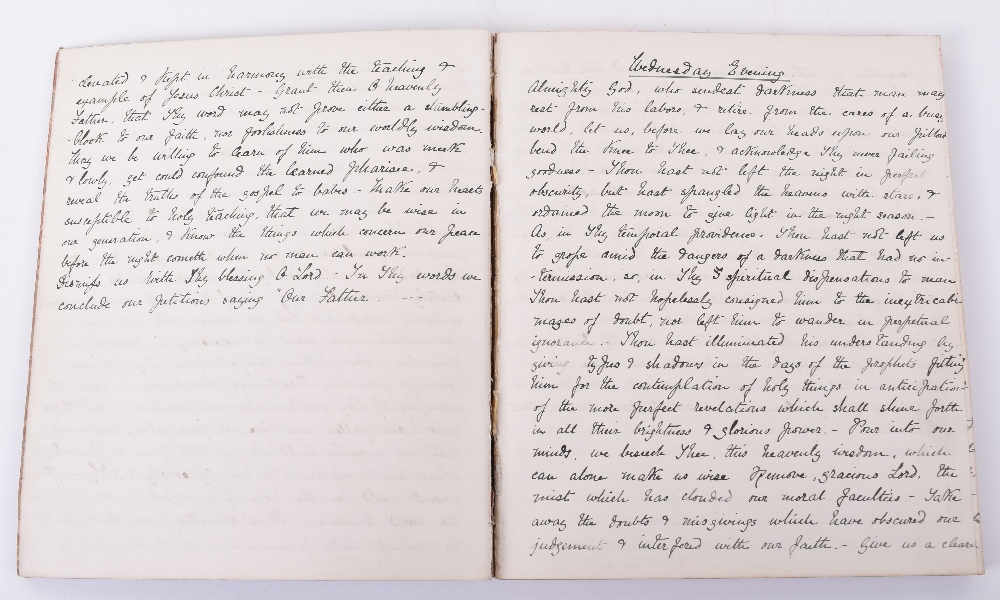 elevated & kept in harmony with the teaching &
example of Jesus Christ - Grant then O heavenly
Father, that Thy word may not prove either a stumbling-
-block to our faith, nor foolishness to our worldly wisdom.
May we be willing to learn of him who was meek
& lowly, yet could confound the learned Pharisee, &
reveal the truths of the gospel to babes - Make our hearts
susceptible to holy teaching, that we may be wise in
our generation, & know the things which concern our peace
before the night cometh when no man can work.
Dismiss us with Thy blessing O Lord - In Thy words we
conclude our petitions saying "Our Father. - - -
Wednesday Evening.
Almighty God, who sendest darkness that man may
rest from his labors, & retire from the cares of a busy
world, let us, before we lay our heads upon our pillows
bend the knee to Thee, & acknowledge Thy never failing
goodness - Thou hast not left the night in perfect
obscurity, but hast spangled the heavens with stars, &
ordained the moon to give light in the night season. -
As, in Thy temporal providence, Thou hast not left us
to grope amid the dangers of a darkness that had no in-
-termission, so, in Thy spiritual dispensations to men
Thou hast not hopelessly consigned him to the inextricabl
mazes of doubt, nor left him to wander in perpetual
ignorance. - Thou hast illuminated his understanding by
giving types & shadows in the days of the prophets fitting
him for the contemplation of holy things in anticipation
of the more perfect revelations which shall shine forth
in all their brightness & glorious power. - Pour into our
minds, we beseech Thee, this heavenly wisdom, which
can alone make us wise Remove, gracious Lord, the
mist which has clouded our moral faculties - Take
away the doubts & misgivings which have obscured our
judgement & interfered with our faith. - Give us a clear